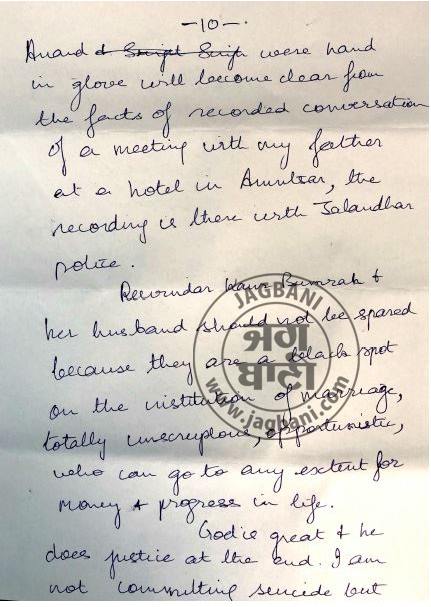 -10-.
Anand were hand
in glove will become clear from
the facts of recorded conversation
of a meeting with my father
at a hotel in Amritsar, the
recording is there with Jalandhar
police.
Kaur Bumrah &
her husband should not be spared
because they are a black spot
on the institution of marriage,
totally unscruplous, opportunistic,
who can go to any extent for
money & progress in life.
God is great & he
does justice at the end. I am
not committing suicide but
JAGBANI
ਜਗ
ਬਾਣੀ
www.jagbani.com